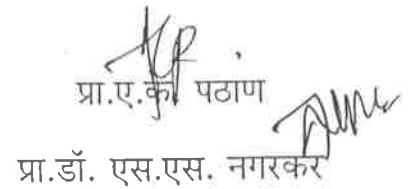 प्रा.ए.के. पठाण
प्रा.डॉ. एस.एस. नगरकर